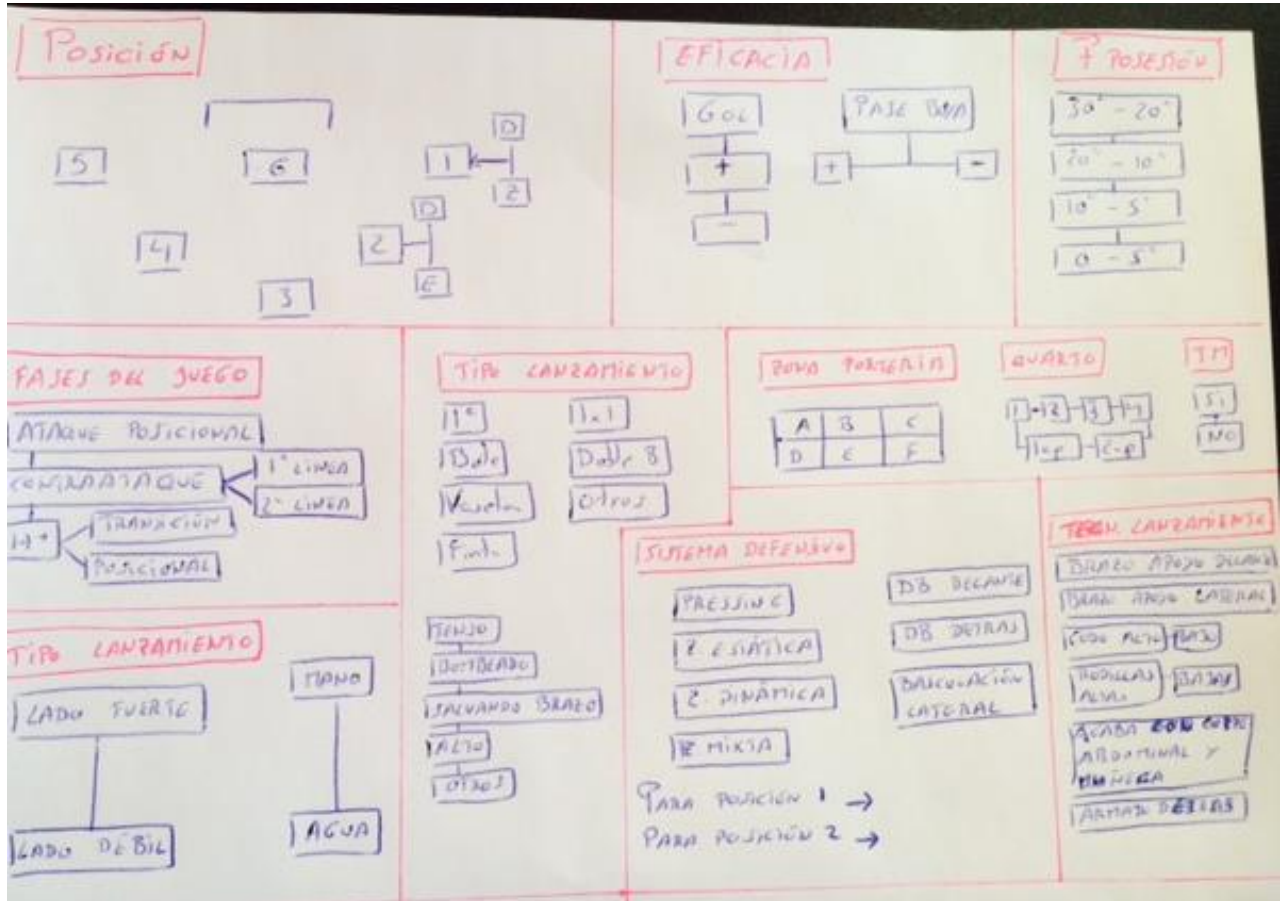 Posición
5
6
1
D
Z
4
2
D
E
3
EFICACIA
GOL
+
-
PASE BOYA
+ -
T POSESIÓN
30" - 20"
20" - 10"
10" - 5"
0 - 5"
FASES DEL JUEGO
ATAQUE POSICIONAL
CONTRAATAQUE
1ª LÍNEA
2ª LÍNEA
TRANSICIÓN
POSICIONAL
TIPO LANZAMIENTO
1º
1x1
Bote
Doble B
Vaselina
Otros
Finta
TENSO
BOMBEADO
SALVANDO BRAZO
ALTO
OTROS
ZONA PORTERIA
A B C
D E F
QUARTO
1 2 3 4
1-P 2-P
TM
Si
NO
TIPO LANZAMIENTO
LADO FUERTE
LADO DÉBIL
MANO
AGUA
SISTEMA DEFENSIVO
PRESSING
Z. ESTÁTICA
Z. DINÁMICA
Z MIXTA
DB DELANTE
DB DETRAS
BASCULACIÓN
LATERAL
PARA POSICIÓN 1 →
PARA POSICIÓN 2 →
TECN. LANZAMIENTO
BRAZO APOYO DELANTE
BRAZO APOYO LATERAL
CODO ALTO BAJO
RODILLAS
ALTAS
BAJAS
ACABA CON CORE
ABDOMINAL Y
MUÑECA
ARMADO DETRAS